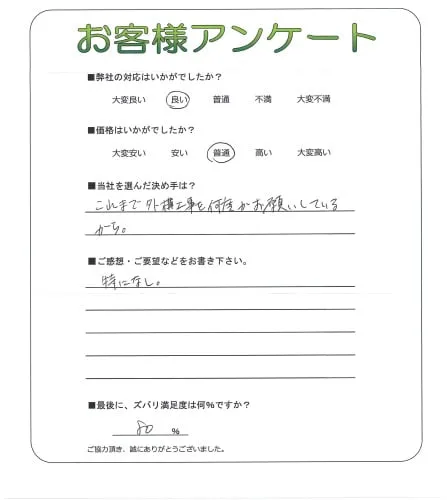 お客様アンケート
■弊社の対応はいかがでしたか?
大変良い 良い 普通 不満 大変不満
■価格はいかがでしたか?
大変安い 安い 普通 高い 大変高い
■当社を選んだ決め手は?
これまで外構工事を何度かお願いしている
から。
■ご感想・ご要望などをお書き下さい。
特になし。
■最後に、ズバリ満足度は何%ですか?
80 %
ご協力頂き、誠にありがとうございました。